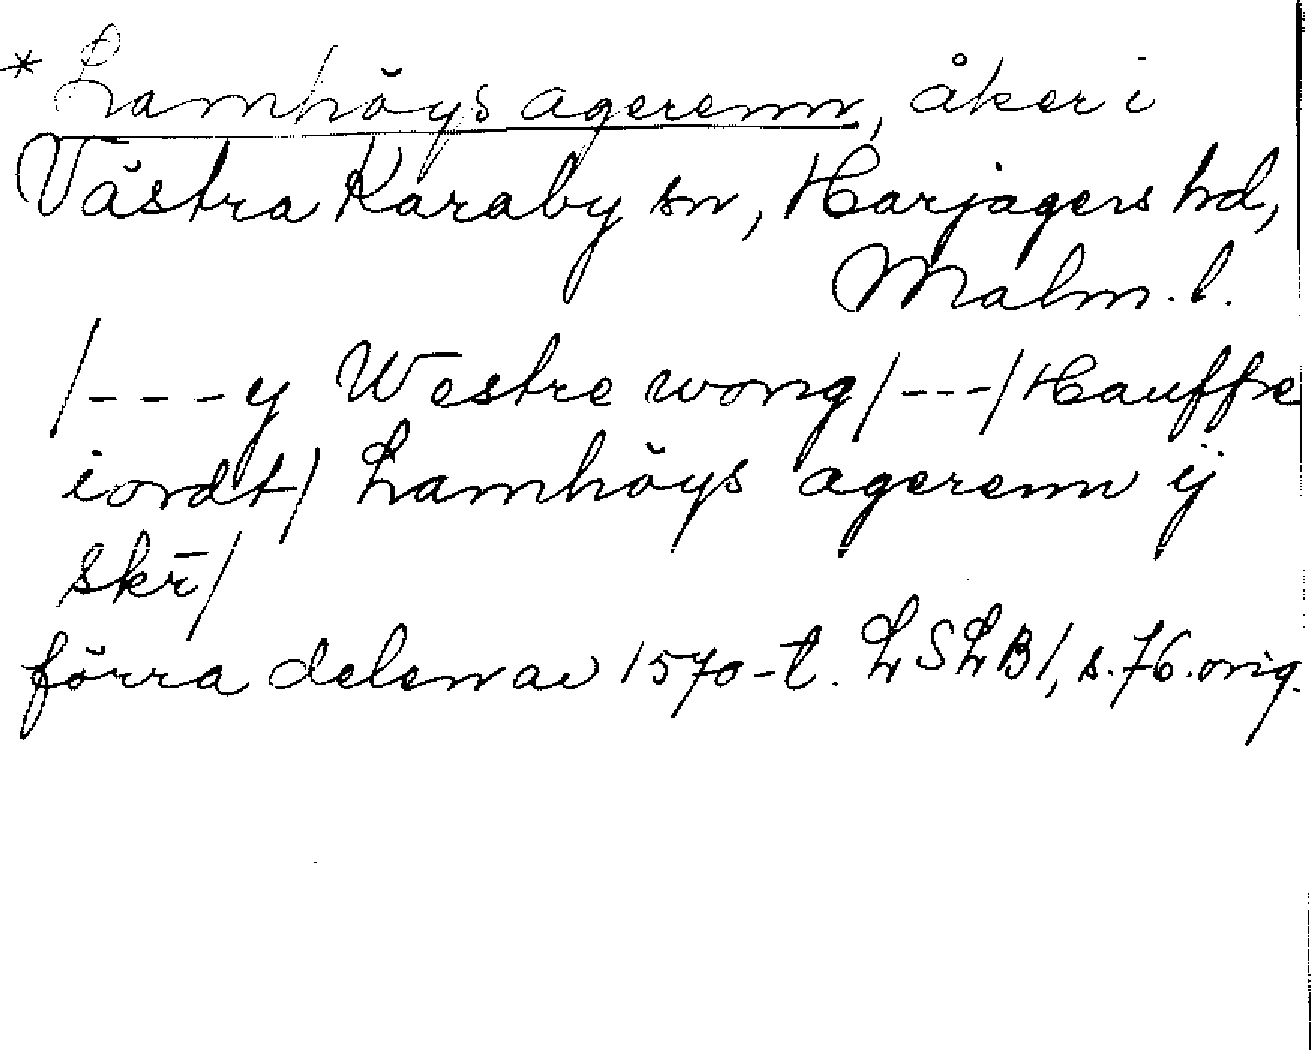 * Lamhöys agerenn, åker i
Västra Karaby sn, Harjagers hd,
Malm. l.
/---y Westre wong/---/Hauffre
iordt/ Lamhöys agerenn ij
skr̄/
förra delen av 1570-t. LSLB1, s. 76. orig.